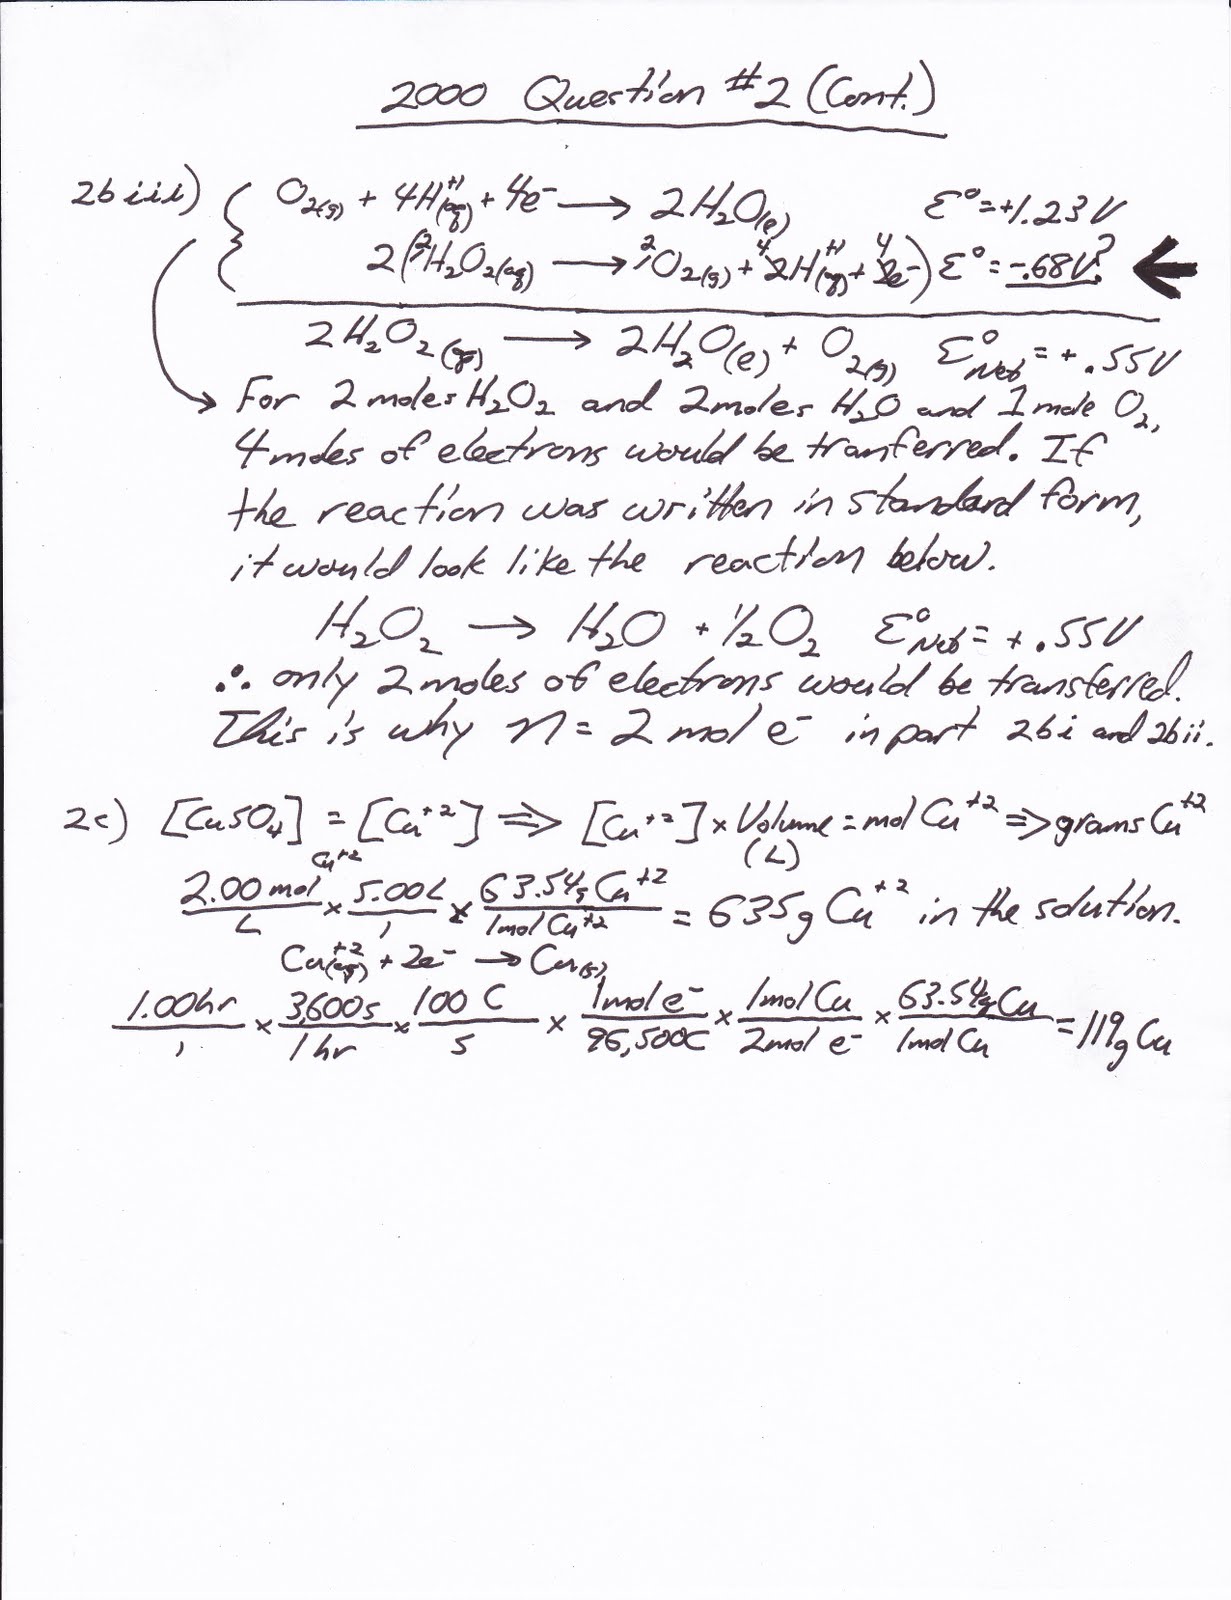 2000 Question #2 (Cont.)
2b iii) O2(g) + 4H+1(aq) + 4e- → 2H2O(l) Ɛ° = +1.23V
2(2H2O2(aq) → 2O2(g) + 42H+1(aq) + 42e-) Ɛ° = -.68V? ←
2H2O2(aq) → 2H2O(l) + O2(g) Ɛ°Net = +.55V
→ For 2 moles H2O2 and 2 moles H2O and 1 mole O2,
4 moles of electrons would be tranferred. If
the reaction was written in standard form,
it would look like the reaction below.
H2O2 → H2O + 1/2 O2 Ɛ°Net = +.55V
∴ only 2 moles of electrons would be transferred.
This is why n = 2 mol e- in part 2b i and 2b ii.
2c) [CuSO4] = [Cu+2] ⇒ [Cu+2] × Volume = mol Cu+2 ⇒ grams Cu+2
(L)
Cu+2
2.00 mol/L × 5.00L/1 × 63.54g Cu+2/1mol Cu+2 = 635g Cu+2 in the solution.
Cu+2(aq) + 2e- → Cu(s)
1.00hr/1 × 3,600s/1hr × 100 C/s × 1mol e-/96,500C × 1mol Cu/2mol e- × 63.54g Cu/1mol Cu = 119g Cu